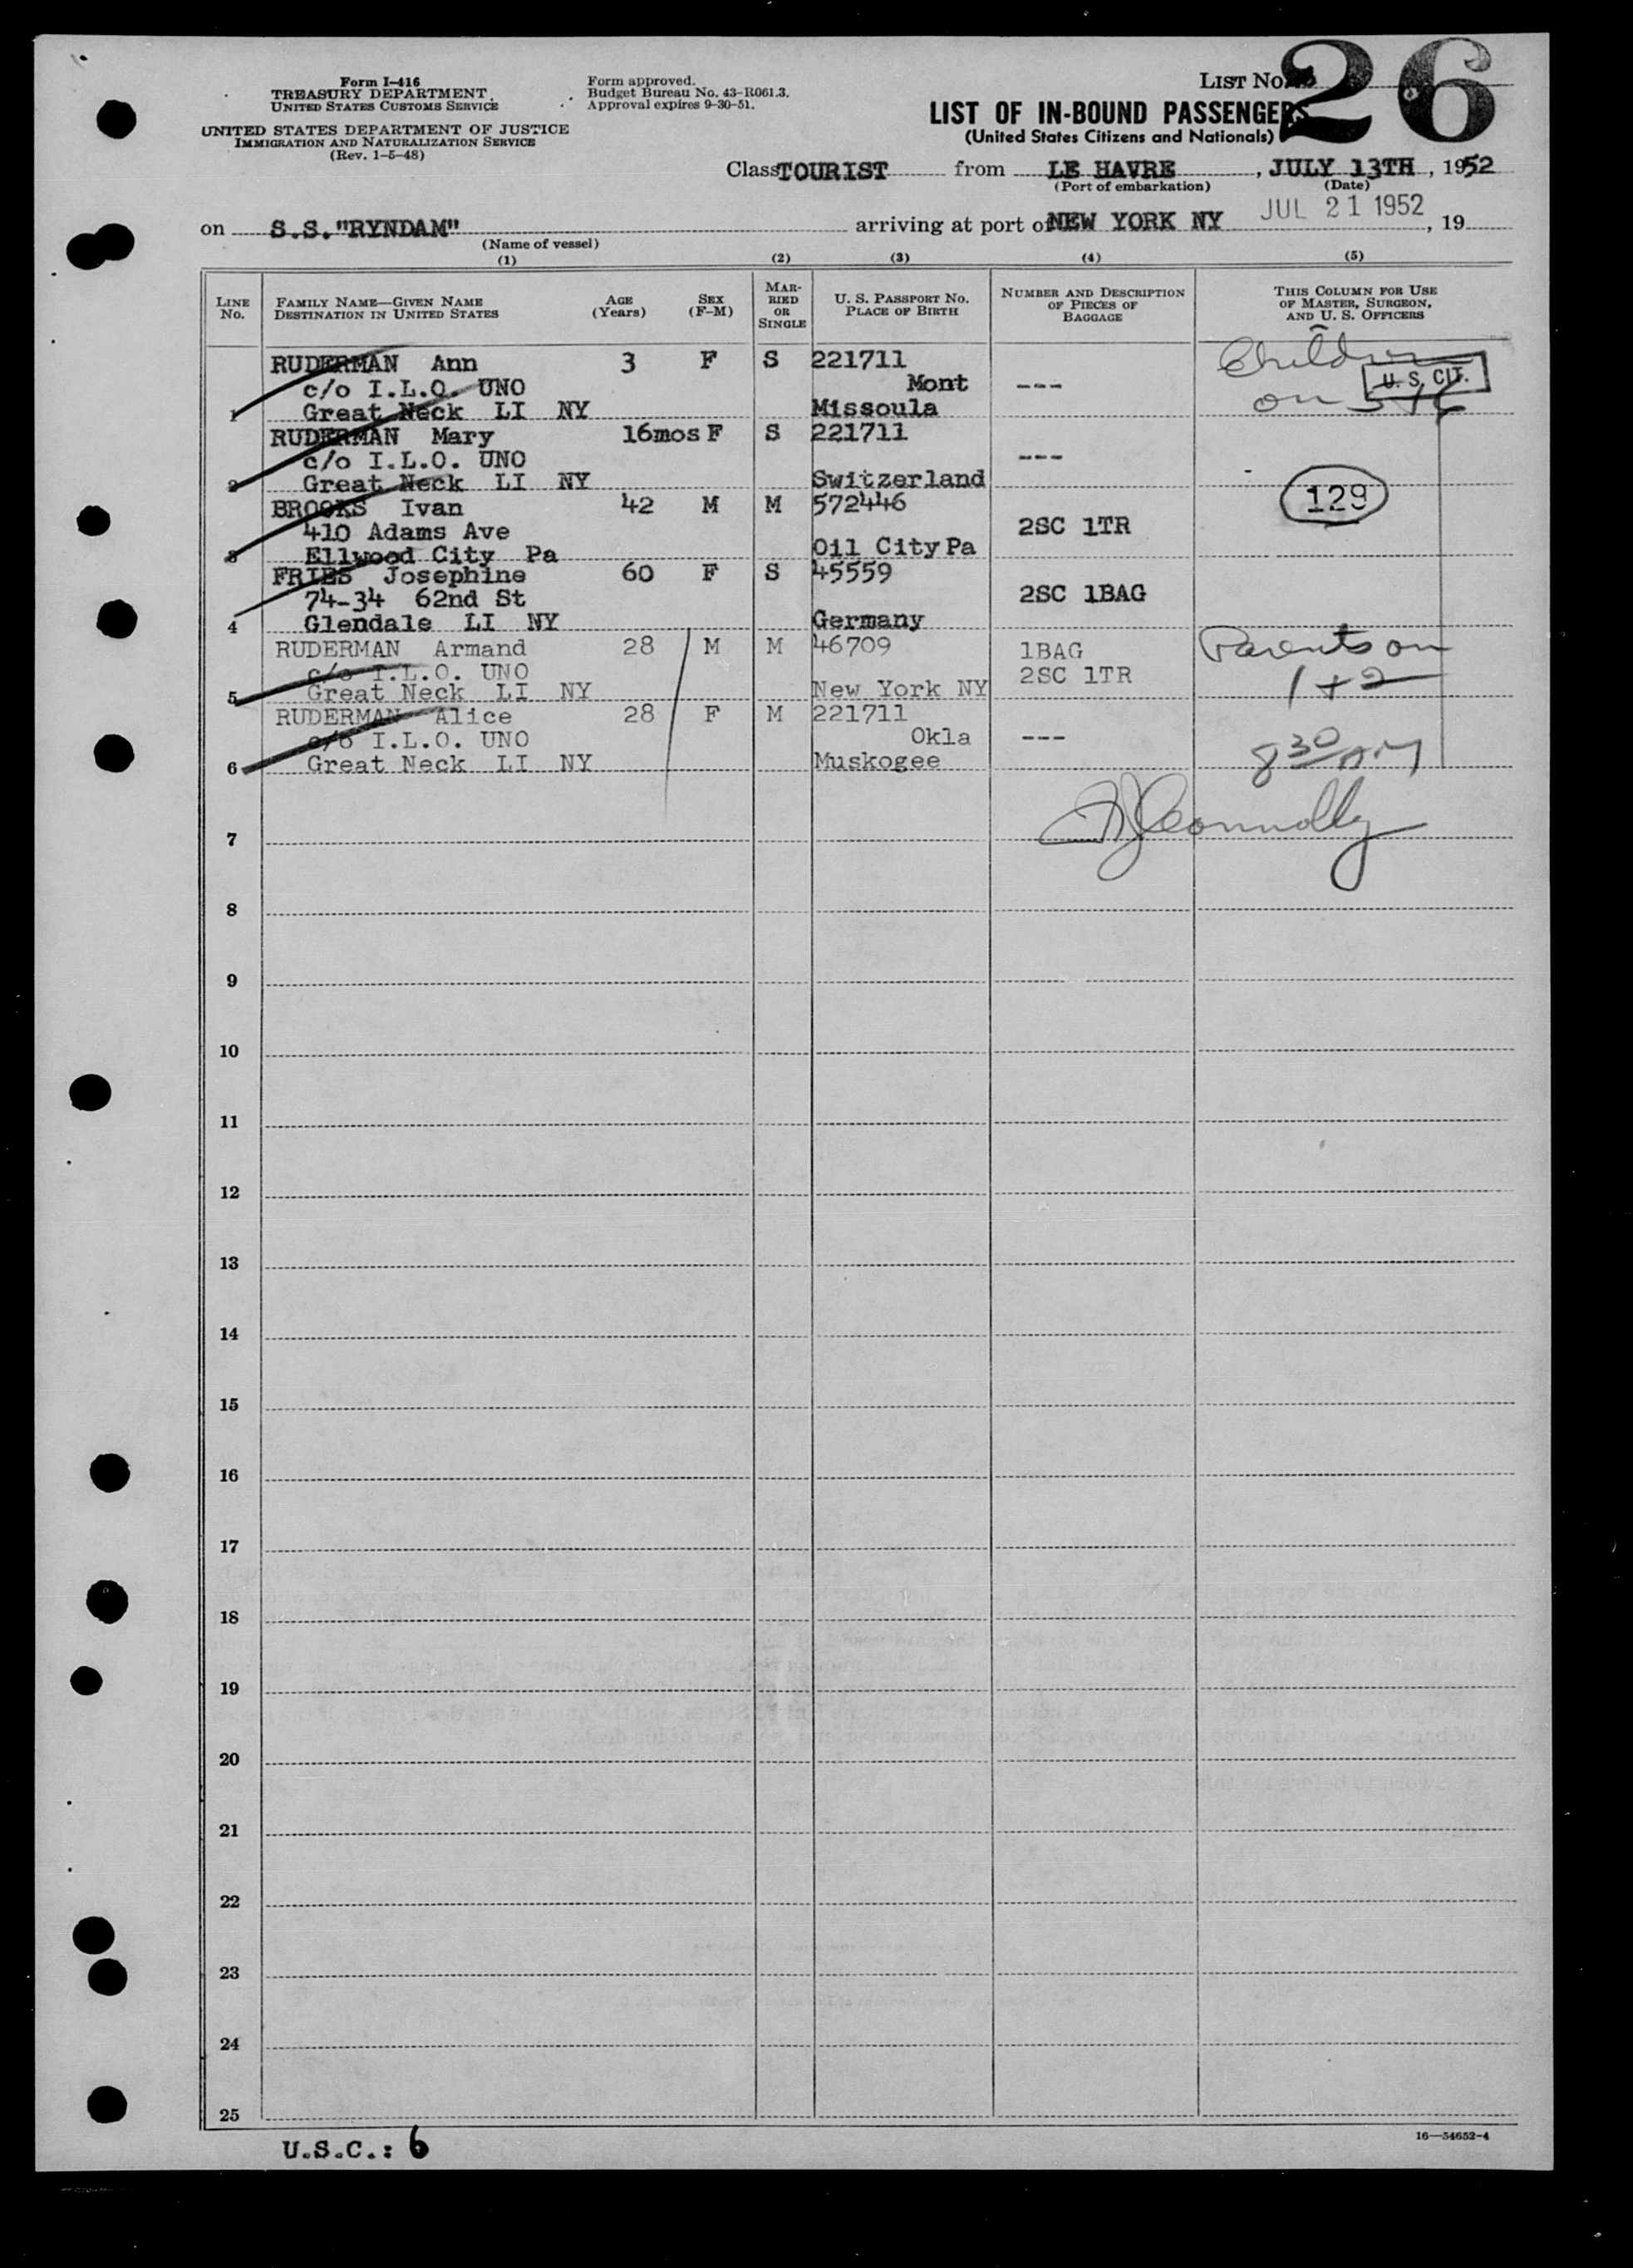 Form I-416
TREASURY DEPARTMENT
UNITED STATES CUSTOMS SERVICE
UNITED STATES DEPARTMENT OF JUSTICE
IMMIGRATION AND NATURALIZATION SERVICE
(Rev. 1-5-48)
Form approved.
Budget Bureau No. 43-R061.3.
Approval expires 9-30-51.
LIST NO. 26
LIST OF IN-BOUND PASSENGERS
(United States Citizens and Nationals)
Class TOURIST from LE HAVRE, JULY 13TH, 1952
(Port of embarkation) (Date)
on S.S."RYNDAM" arriving at port of NEW YORK NY JUL 21 1952, 19
(Name of vessel)
(1) (2) (3) (4) (5)
LINE No.
FAMILY NAME—GIVEN NAME
DESTINATION IN UNITED STATES
AGE (Years)
SEX (F-M)
MARRIED OR SINGLE
U. S. PASSPORT NO.
PLACE OF BIRTH
NUMBER AND DESCRIPTION OF PIECES OF BAGGAGE
THIS COLUMN FOR USE OF MASTER, SURGEON, AND U. S. OFFICERS
RUDERMAN Ann 3 F S 221711 Children
c/o I.L.O. UNO Mont --- U.S. CIT.
1 Great Neck LI NY Missoula on 5+6
RUDERMAN Mary 16mos F S 221711
c/o I.L.O. UNO ---
2 Great Neck LI NY Switzerland
BROOKS Ivan 42 M M 572446 129
410 Adams Ave 2SC 1TR
3 Ellwood City Pa Oil City Pa
FRIES Josephine 60 F S 45559
74-34 62nd St 2SC 1BAG
4 Glendale LI NY Germany
RUDERMAN Armand 28 M M 46709 1BAG Parents on
c/o I.L.O. UNO 2SC 1TR
5 Great Neck LI NY New York NY 1+2
RUDERMAN Alice 28 F M 221711
c/o I.L.O. UNO Okla --- 8 30 AM
6 Great Neck LI NY Muskogee
7 Connolly
8
9
10
11
12
13
14
15
16
17
18
19
20
21
22
23
24
25
U.S.C.: 6
16—54652-4